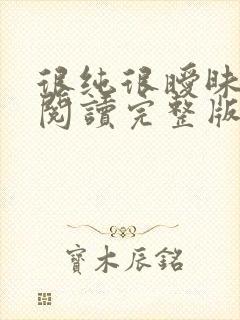 很纯很曖昧
閱讀完整版
寶木辰銘